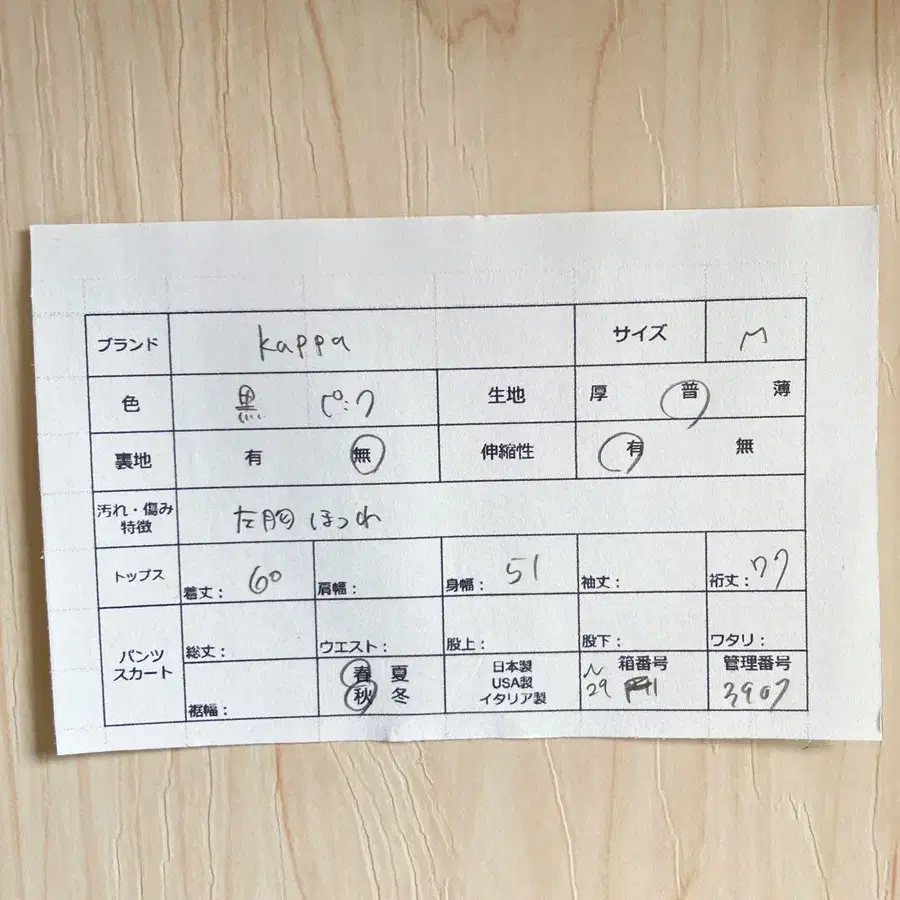 ブランド kappa サイズ M
色 黒 ピンク 生地 厚 普 薄
裏地 有 無 伸縮性 有 無
汚れ・傷み
特徴 左胸 ほつれ
トップス 着丈: 60 肩幅: 身幅: 51 袖丈: 裄丈: 77
パンツ
スカート 総丈: ウエスト: 股上: 股下: ワタリ:
裾幅: 春 夏
秋 冬
日本製
USA製
イタリア製
N 箱番号
29
管理番号
3907